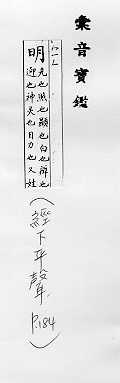 彙音寶鑑
明
光也照也顯也白也辭也
迎也神天也日力也又姓
(經下平聲
P.184)